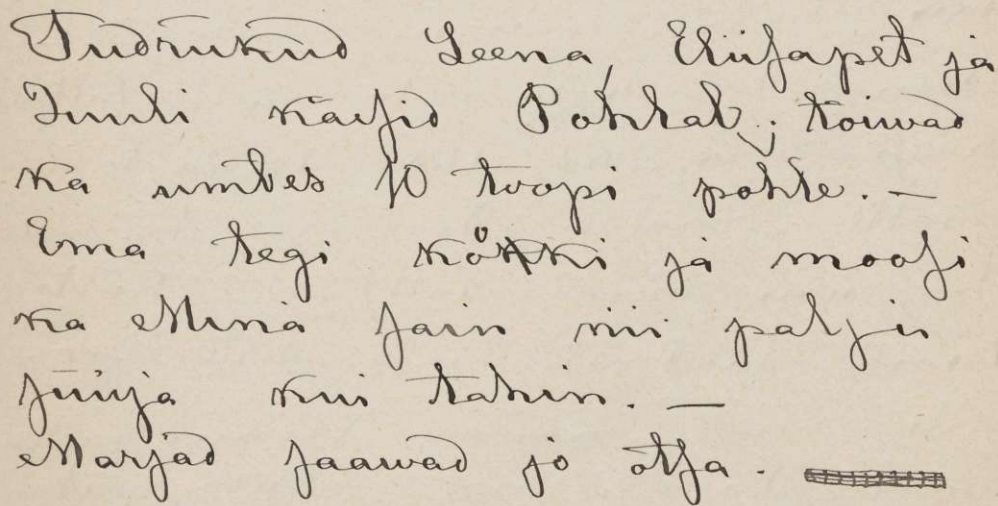 Tüdrukud Leena, Eliisapet ja
Juuli käisid Pohlal; tõiwad
ka umbes 10 toopi pohle. —
Ema tegi kööki ja moosi
ka Mina sain nii palju
süüja kui tahin. —
Marjad saawad jo otsa.